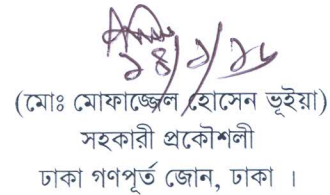 ১৪/১/১৮
(মোঃ মোফাজ্জেল হোসেন ভূইয়া)
সহকারী প্রকৌশলী
ঢাকা গণপূর্ত জোন, ঢাকা ।